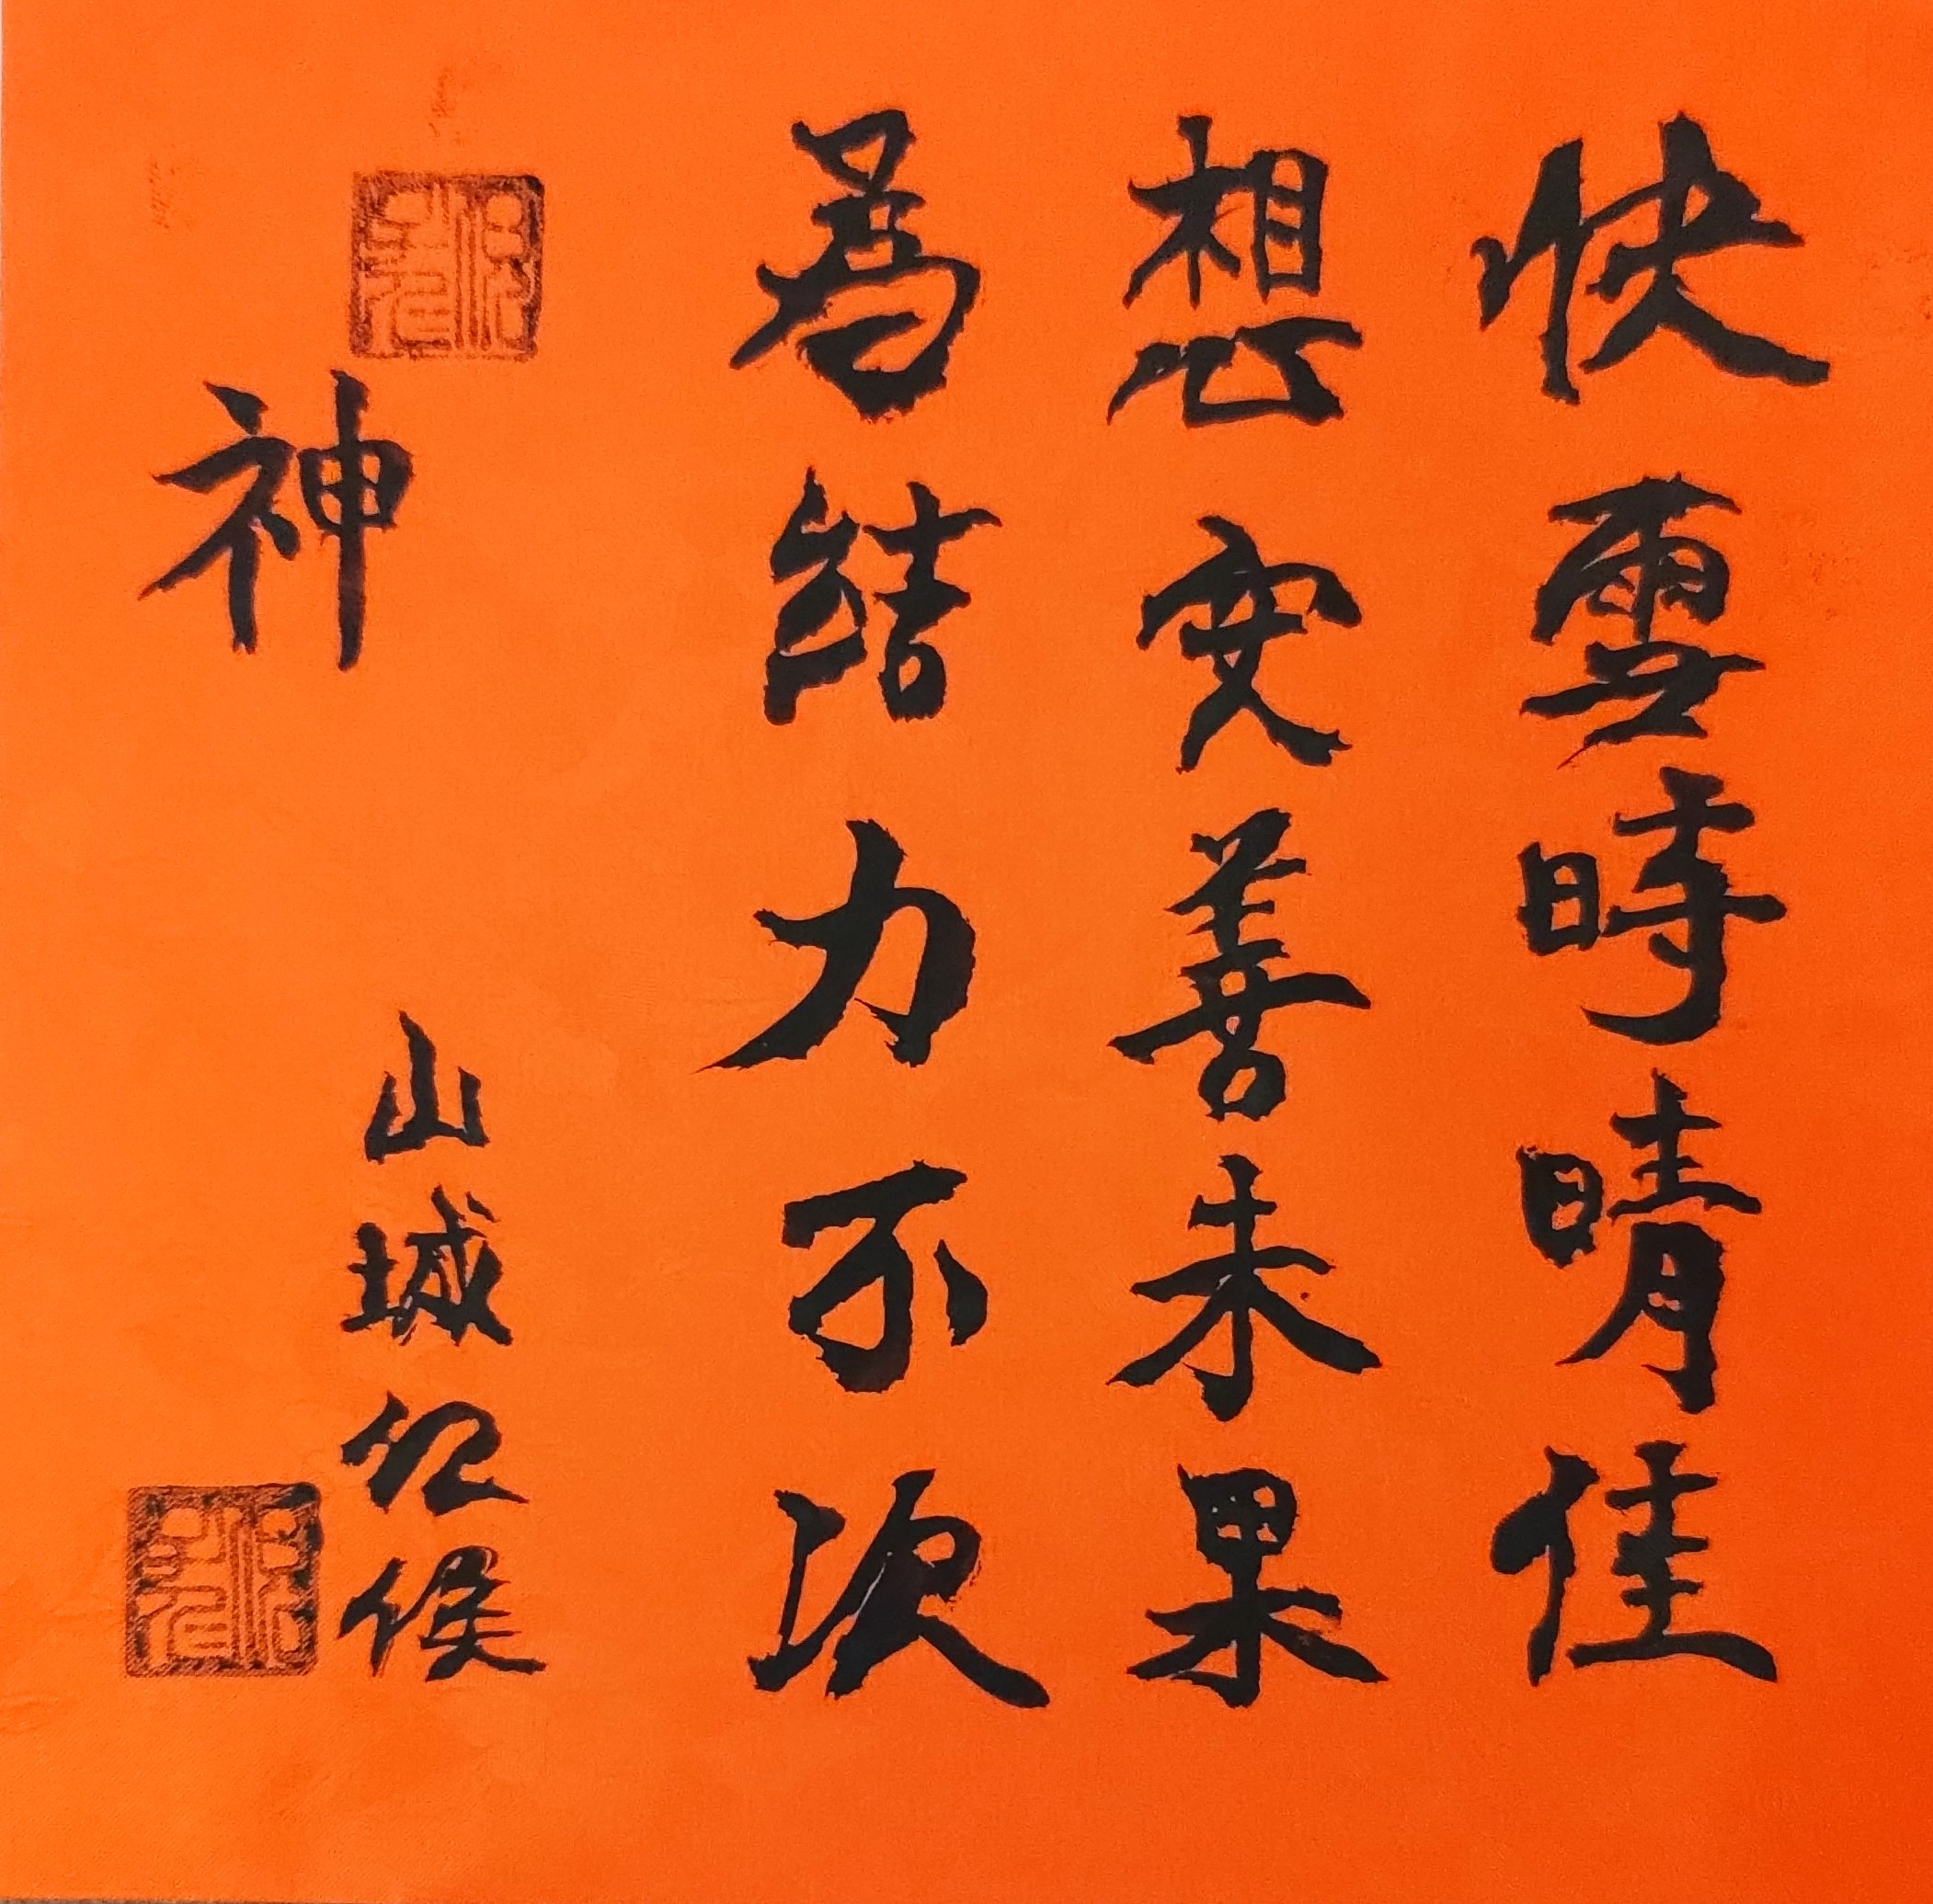 快雪時晴佳
想安善未果
為結力不次
神
山城